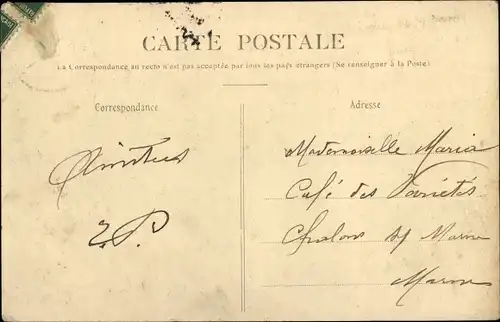 CARTE POSTALE
La Correspondance au recto n'est pas acceptée par tous les pays étrangers (Se renseigner à la Poste)
Correspondance
Adresse
Amitiés
E.P.
Mademoiselle Maria
Café des Variétés
Chalons s/ Marne
Marne